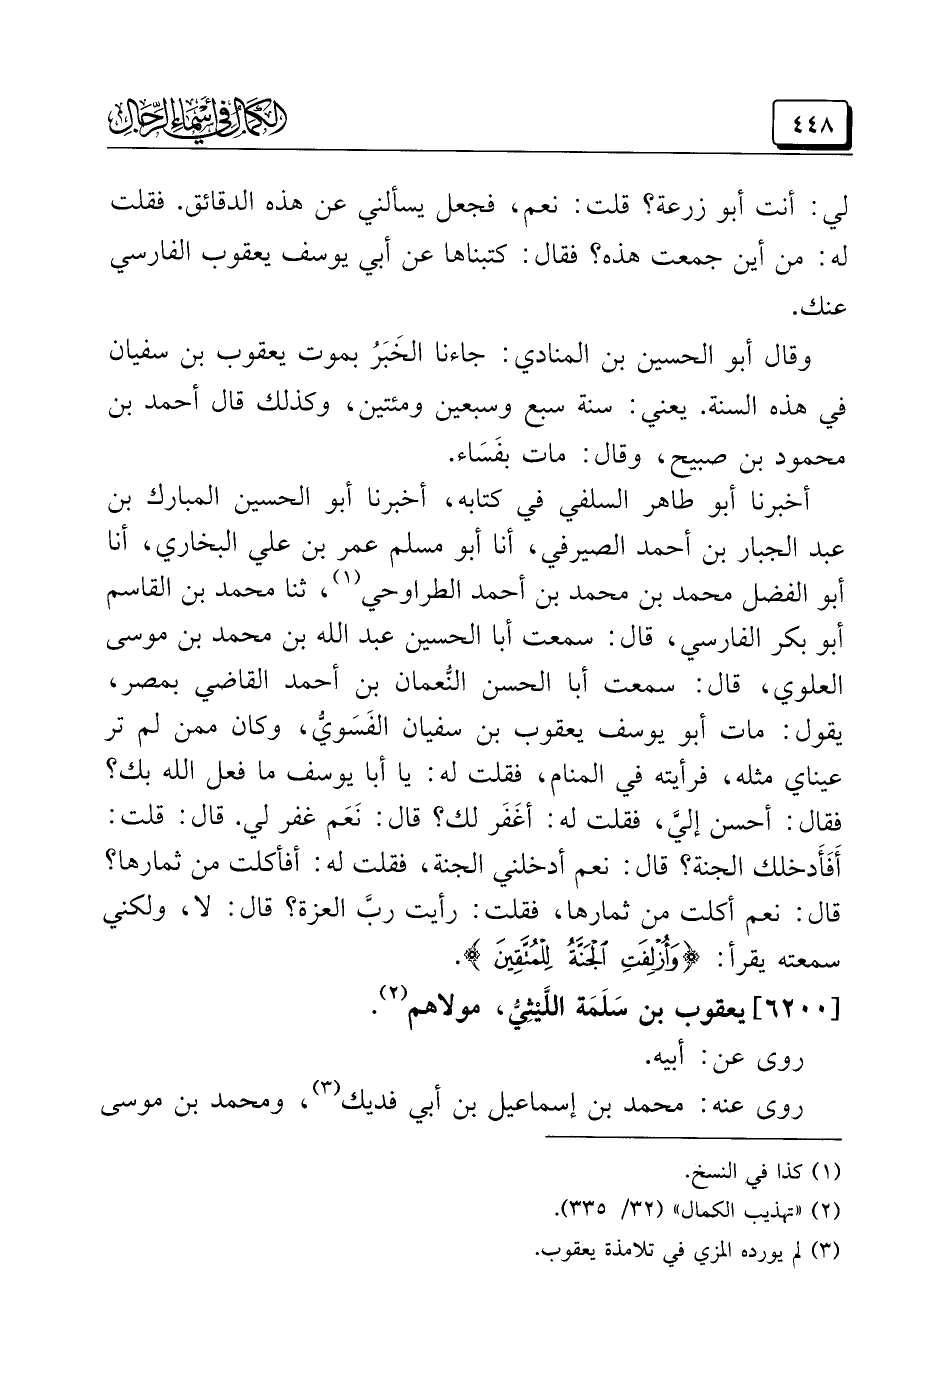 ٤٤٨
الكمال في أسماء الرجال
لي: أنت أبو زرعة؟ قلت: نعم، فجعل يسألني عن هذه الدقائق. فقلت
له: من أين جمعت هذه؟ فقال: كتبناها عن أبي يوسف يعقوب الفارسي
عنك.
وقال أبو الحسين بن المنادي: جاءنا الخَبَرُ بموت يعقوب بن سفيان
في هذه السنة. يعني: سنة سبع وسبعين ومئتين، وكذلك قال أحمد بن
محمود بن صبيح، وقال: مات بفَسَاء.
أخبرنا أبو طاهر السلفي في كتابه، أخبرنا أبو الحسين المبارك بن
عبد الجبار بن أحمد الصيرفي، أنا أبو مسلم عمر بن علي البخاري، أنا
أبو الفضل محمد بن محمد بن أحمد الطراوحي(١)، ثنا محمد بن القاسم
أبو بكر الفارسي، قال: سمعت أبا الحسين عبد الله بن محمد بن موسى
العلوي، قال: سمعت أبا الحسن النُّعمان بن أحمد القاضي بمصر،
يقول: مات أبو يوسف يعقوب بن سفيان الفَسَويُّ، وكان ممن لم تر
عيناي مثله، فرأيته في المنام، فقلت له: يا أبا يوسف ما فعل الله بك؟
فقال: أحسن إليَّ، فقلت له: أغَفَر لك؟ قال: نَعَم غفر لي. قال: قلت:
أَفَأَدخلك الجنة؟ قال: نعم أدخلني الجنة، فقلت له: أفأكلت من ثمارها؟
قال: نعم أكلت من ثمارها، فقلت: رأيت ربَّ العزة؟ قال: لا، ولكني
سمعته يقرأ: ﴿وَأُزْلِفَتِ ٱلْجَنَّةُ لِلْمُتَّقِينَ﴾.
[٦٢٠٠] يعقوب بن سَلَمَة اللَّيْثِيُّ، مولاهم(٢).
روى عن: أبيه.
روى عنه: محمد بن إسماعيل بن أبي فديك(٣)، ومحمد بن موسى
(١) كذا في النسخ.
(٢) «تهذيب الكمال» (٣٢/ ٣٣٥).
(٣) لم يورده المزي في تلامذة يعقوب.